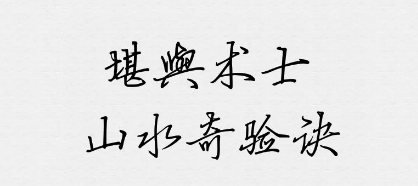 堪舆术士
山水奇验诀